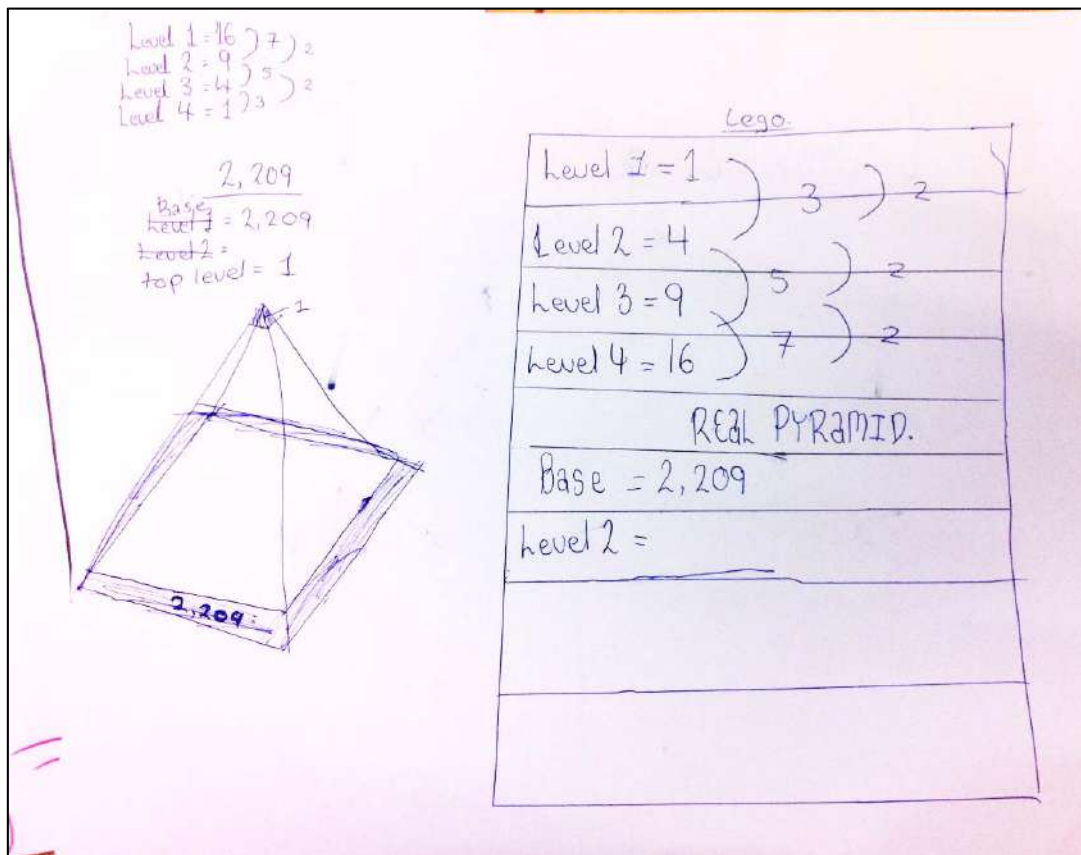 Level 1 = 16 ) 7 ) 2
Level 2 = 9 ) 5
Level 3 = 4 ) 3 ) 2
Level 4 = 1
2,209
Base
Level 1 = 2,209
Level 2 =
top level = 1
1
2,209
Lego.
Level 1 = 1
3
2
Level 2 = 4
5
2
Level 3 = 9
7
2
Level 4 = 16
REaL PYRaMID.
Base = 2,209
Level 2 =